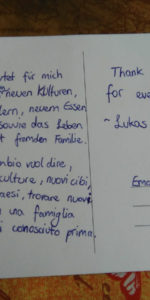 tet für mich
neuen Kulturen,
dern, neuem Essen
sowie das Leben
t fremden Familie.
mbio vuol dire,
culture, nuovi cibi,
aesi, trovare nuovi
una famiglia
i conosciuto prima.
Thank
for eve
~ Lukas
Ema